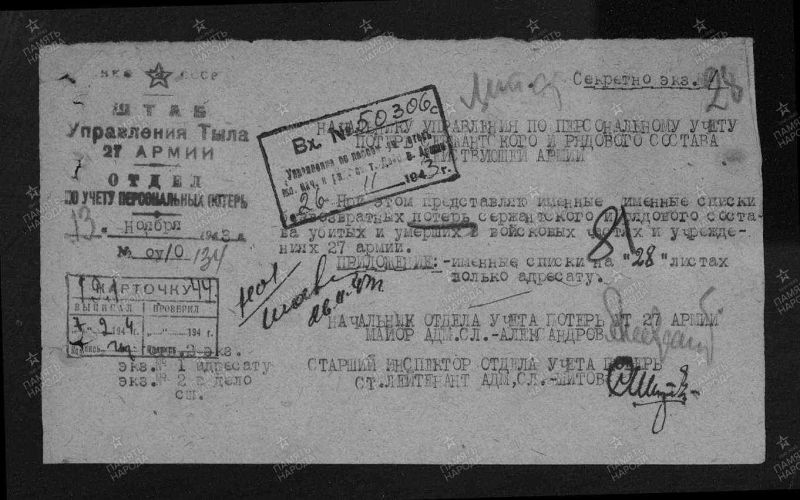 НКО СССР
ШТАБ
Управления Тыла
27 АРМИИ
ОТДЕЛ
ПО УЧЕТУ ПЕРСОНАЛЬНЫХ ПОТЕРЬ
13 ноября 1943 г.
№ оу/0 134
Секретно экз. №
28
Вх № 50306с
11 1943 г.
НАЧАЛЬНИКУ УПРАВЛЕНИЯ ПО ПЕРСОНАЛЬНОМУ УЧЕТУ
ПОТЕРЬ СЕРЖАНТСКОГО И РЯДОВОГО СОСТАВА
ДЕЙСТВУЮЩЕЙ АРМИИ
При этом представляю именные именные списки
безвозвратных потерь сержантского и рядового соста-
ва убитых и умерших в войсковых частях и учрежде-
ниях 27 армии.
ПРИЛОЖЕНИЕ:-именные списки на "28" листах
только адресату.
81
КАРТОЧКУ
ВЫПИСАЛ ПРОВЕРИЛ
194 194 г.
НАЧАЛЬНИК ОТДЕЛА УЧЕТА ПОТЕРЬ УТ 27 АРМИИ
МАЙОР АДМ.СЛ.-АЛЕКСАНДРОВ
СТАРШИЙ ИНСПЕКТОР ОТДЕЛА УЧЕТА ПОТЕРЬ
СТ.ЛЕЙТЕНАНТ АДМ.СЛ.-ШИТОВ
2 экз.
экз.№ 1 адресату
экз.№ 2 в дело
сш.
ПАМЯТЬ НАРОДА